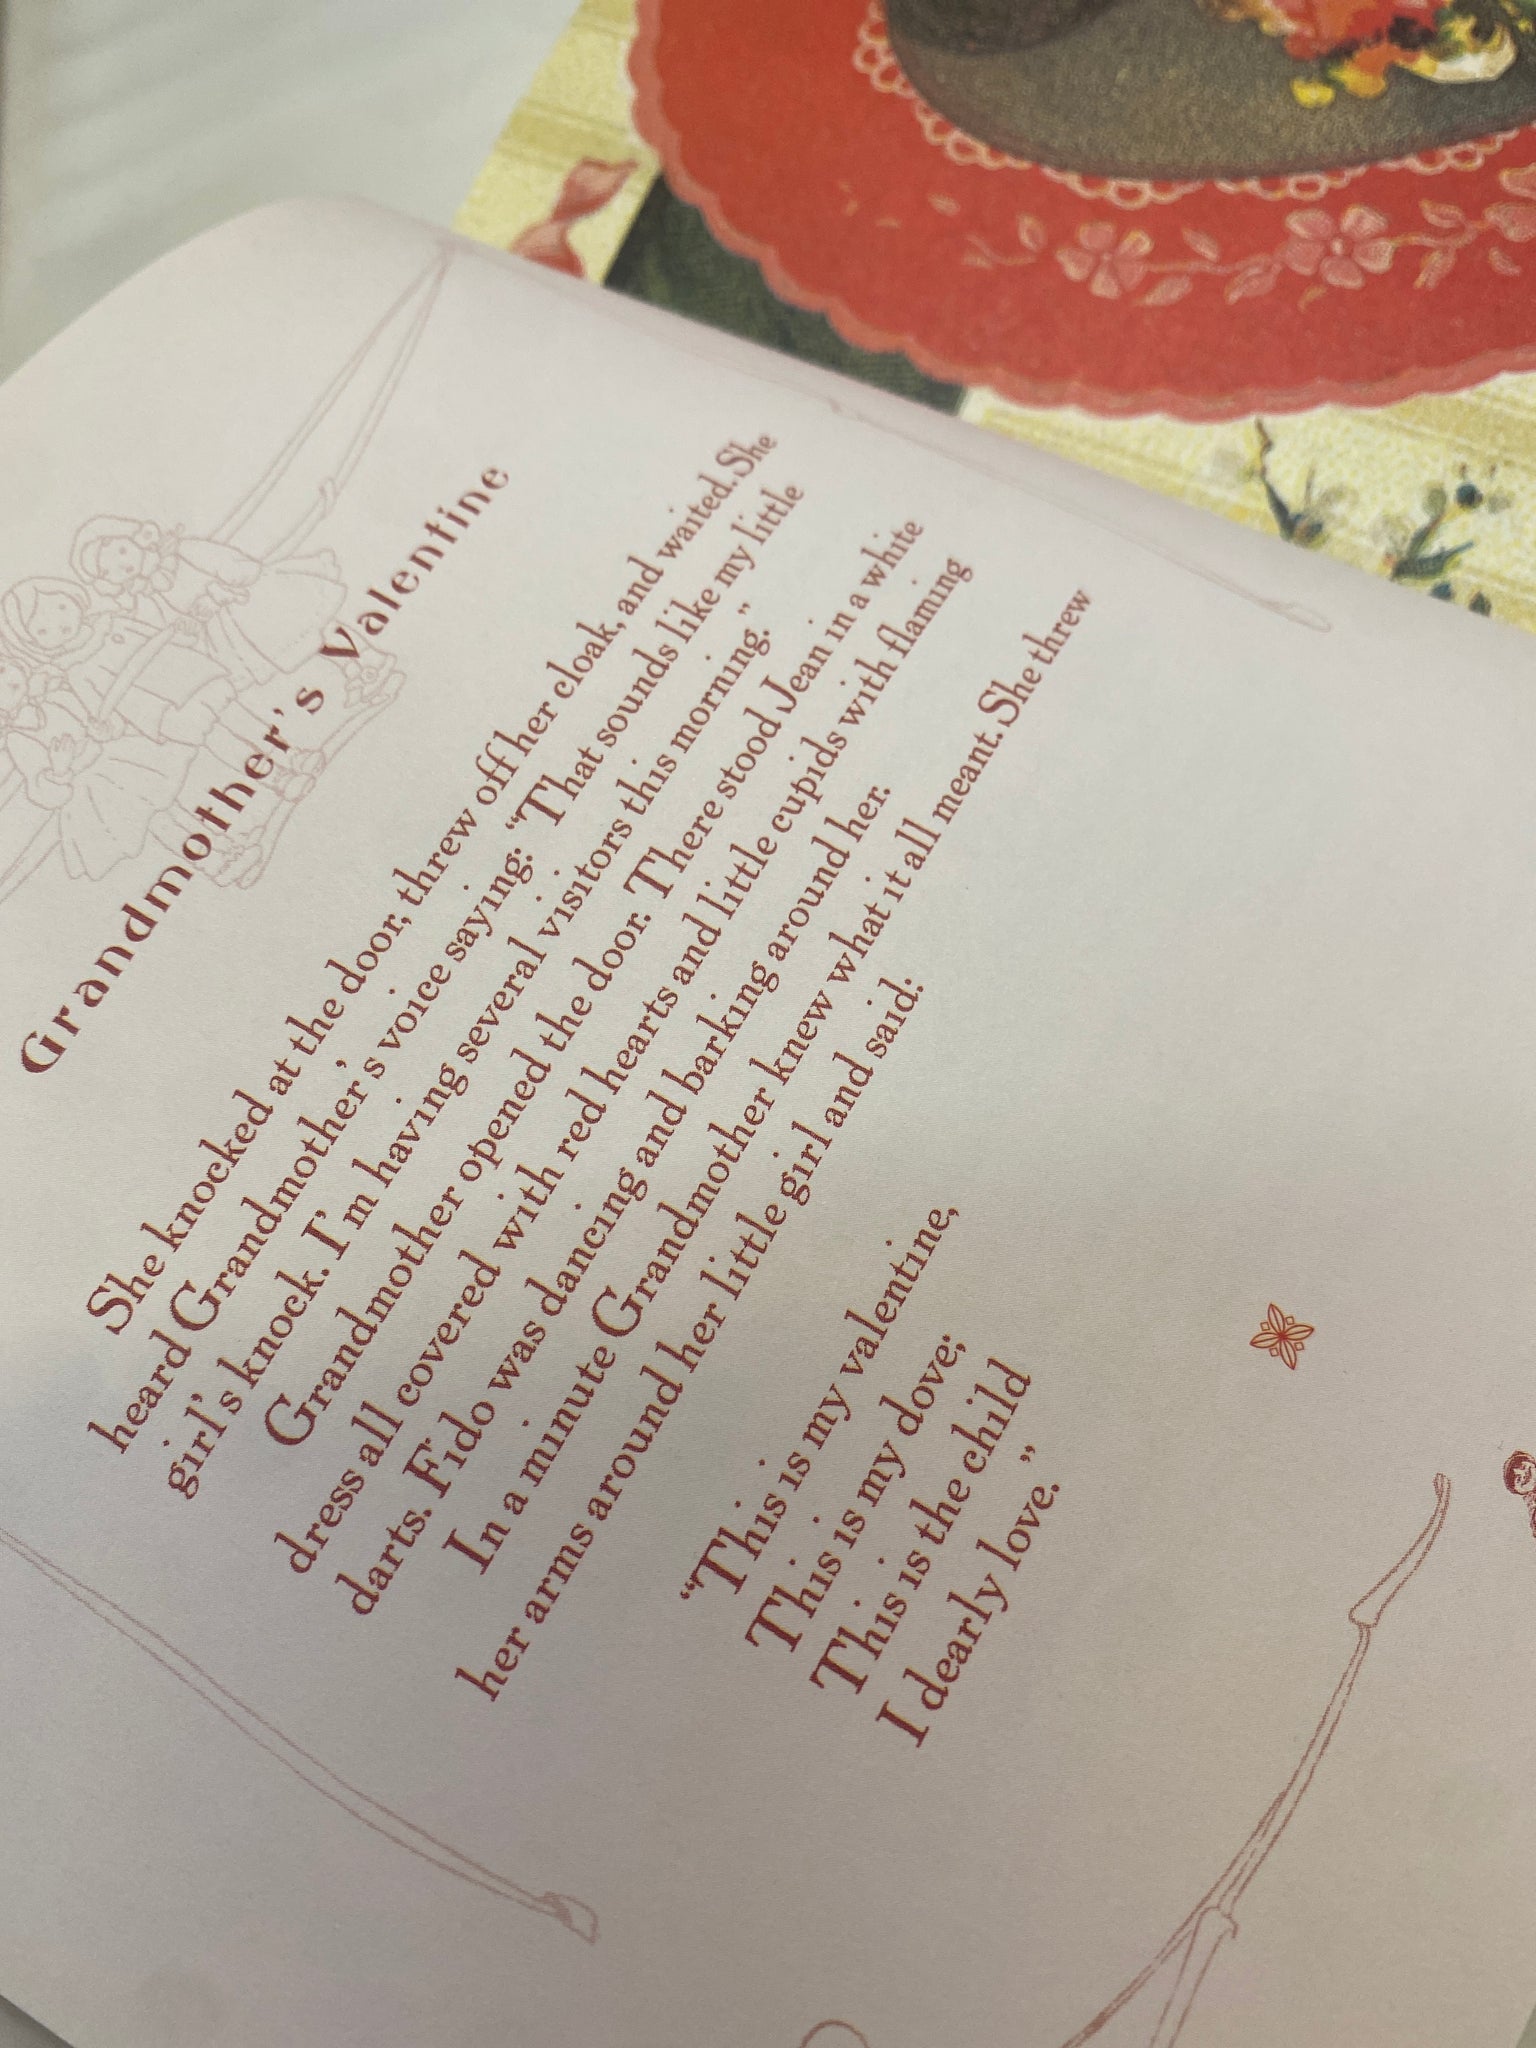 Grandmother's Valentine
She knocked at the door, threw off her cloak, and waited. She
heard Grandmother's voice saying: “That sounds like my little
girl's knock. I'm having several visitors this morning.”
Grandmother opened the door. There stood Jean in a white
dress all covered with red hearts and little cupids with flaming
darts. Fido was dancing and barking around her.
In a minute Grandmother knew what it all meant. She threw
her arms around her little girl and said:
“This is my valentine,
This is my dove;
This is the child
I dearly love.”